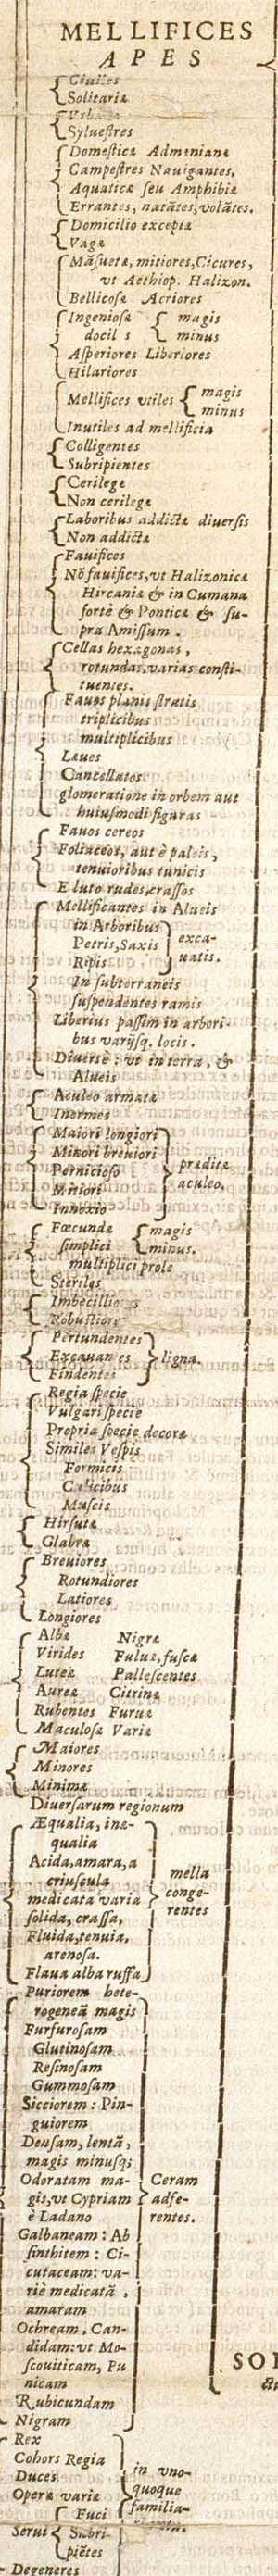 MELLIFICES
APES
Ciuiles
Solitariæ
Vrbanæ
Syluestres
Domesticæ Admenianæ
Campestres Nauigantes,
Aquaticæ seu Amphibiæ
Errantes, natātes, volātes.
Domicilio exceptæ
Vagæ
Māsuetæ, mitiores, Cicures,
vt Aethiop. Halizon.
Bellicosæ Acriores
Ingeniosæ magis
docil s minus
Asperiores Liberiores
Hilariores
Mellifices vtiles magis
minus
Inutiles ad mellificia
Colligentes
Subripientes
Cerilegæ
Non cerilegæ
Laboribus addictæ diuersis
Non addictæ
Fauifices
Nō fauifices, vt Halizonicæ
Hircaniæ & in Cumana
fortè & Ponticæ & su-
pra Amissum.
Cellas hexagonas,
rotundas, varias consti-
tuentes.
Fauos planis stratis
triplicibus
multiplicibus
Læues
Cancellatos
glomeratione in orbem aut
huiusmodi figuras
Fauos cereos
Foliaceos, aut è paleis,
tenuioribus tunicis
E luto rudes, crassos
Mellificantes in Alueis
in Arboribus
Petris, Saxis exca-
Ripis uatis.
In subterraneis
suspendentes ramis
Liberius passim in arbori-
bus varijsq. locis.
Diuersè: vt in terra, &
Alueis
Aculeo armatæ
Inermes
Maiori longiori
Minori breuiori
Pernicioso præditæ
Mitiori aculeo.
Innoxio
Fœcundæ magis
simplici minus.
multiplici prole
Steriles
Imbecillio s
Robustior
Pertundentes
Excauan es ligna.
Findentes
Regia specie
Vulgari specie
Propria specie decoræ
Similes Vespis
Formicis
C licibus
Muscis
Hirsutæ
Glabræ
Breuiores
Rotundiores
Latiores
Longiores
Albæ Nigræ
Virides Fuluæ, fuscæ
Luteæ Pallescentes
Aureæ Citrinæ
Rubentes Furuæ
Maculosæ Variæ
Maiores
Minores
Minimæ
Diuersarum regionum
Æqualia, inæ-
qualia
Acida, amara, a
criuscula mella
medicata varia conge-
solida, crassa, rentes
Fluida, tenuia,
arenosa.
Flaua alba ruffa
Puriorem hete-
rogeneā magis
Furfurosam
Glutinosam
Resinosam
Gummosam
Sicciorem: Pin-
guiorem
Densam, lentā,
magis minusq;
Odoratam ma- Ceram
gis, vt Cypriam adfe-
è Ladano rentes.
Galbaneam: Ab
sinthitem: Ci-
cutaceam: va-
riè medicatā,
amaram
Ochream, Can-
didam: vt Mo-
scouiticam, Pu
nicam
Rubicundam
Nigram
SO
Rex
Cohors Regia
Duces in vno-
Operæ variæ quoque
Fuci familia-
Serui Subri-
piētes
Degeneres